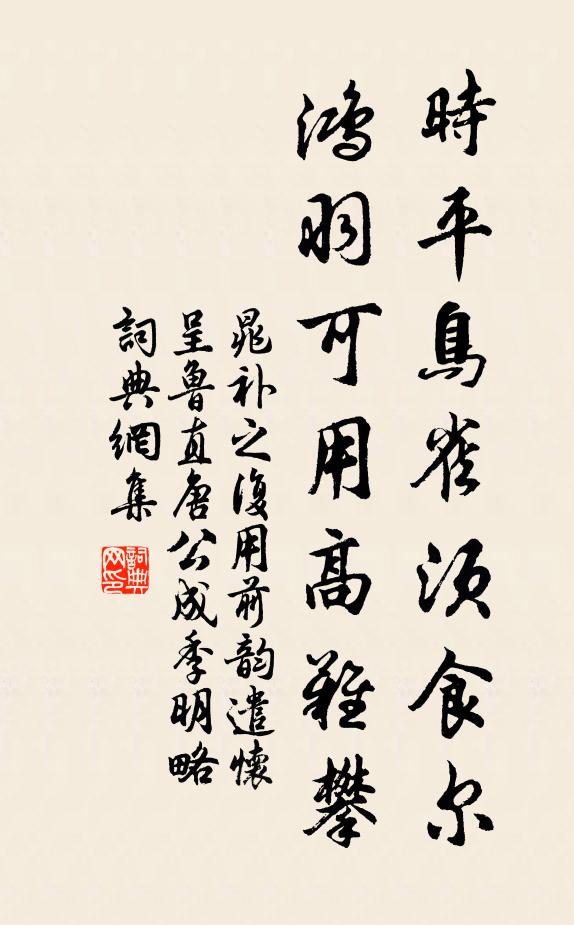 時平鳥雀須食尔
鴻羽可用高難攀
晁补之復用前韵遣懷
呈魯直唐公成季明略
詞典網集
詞典网印